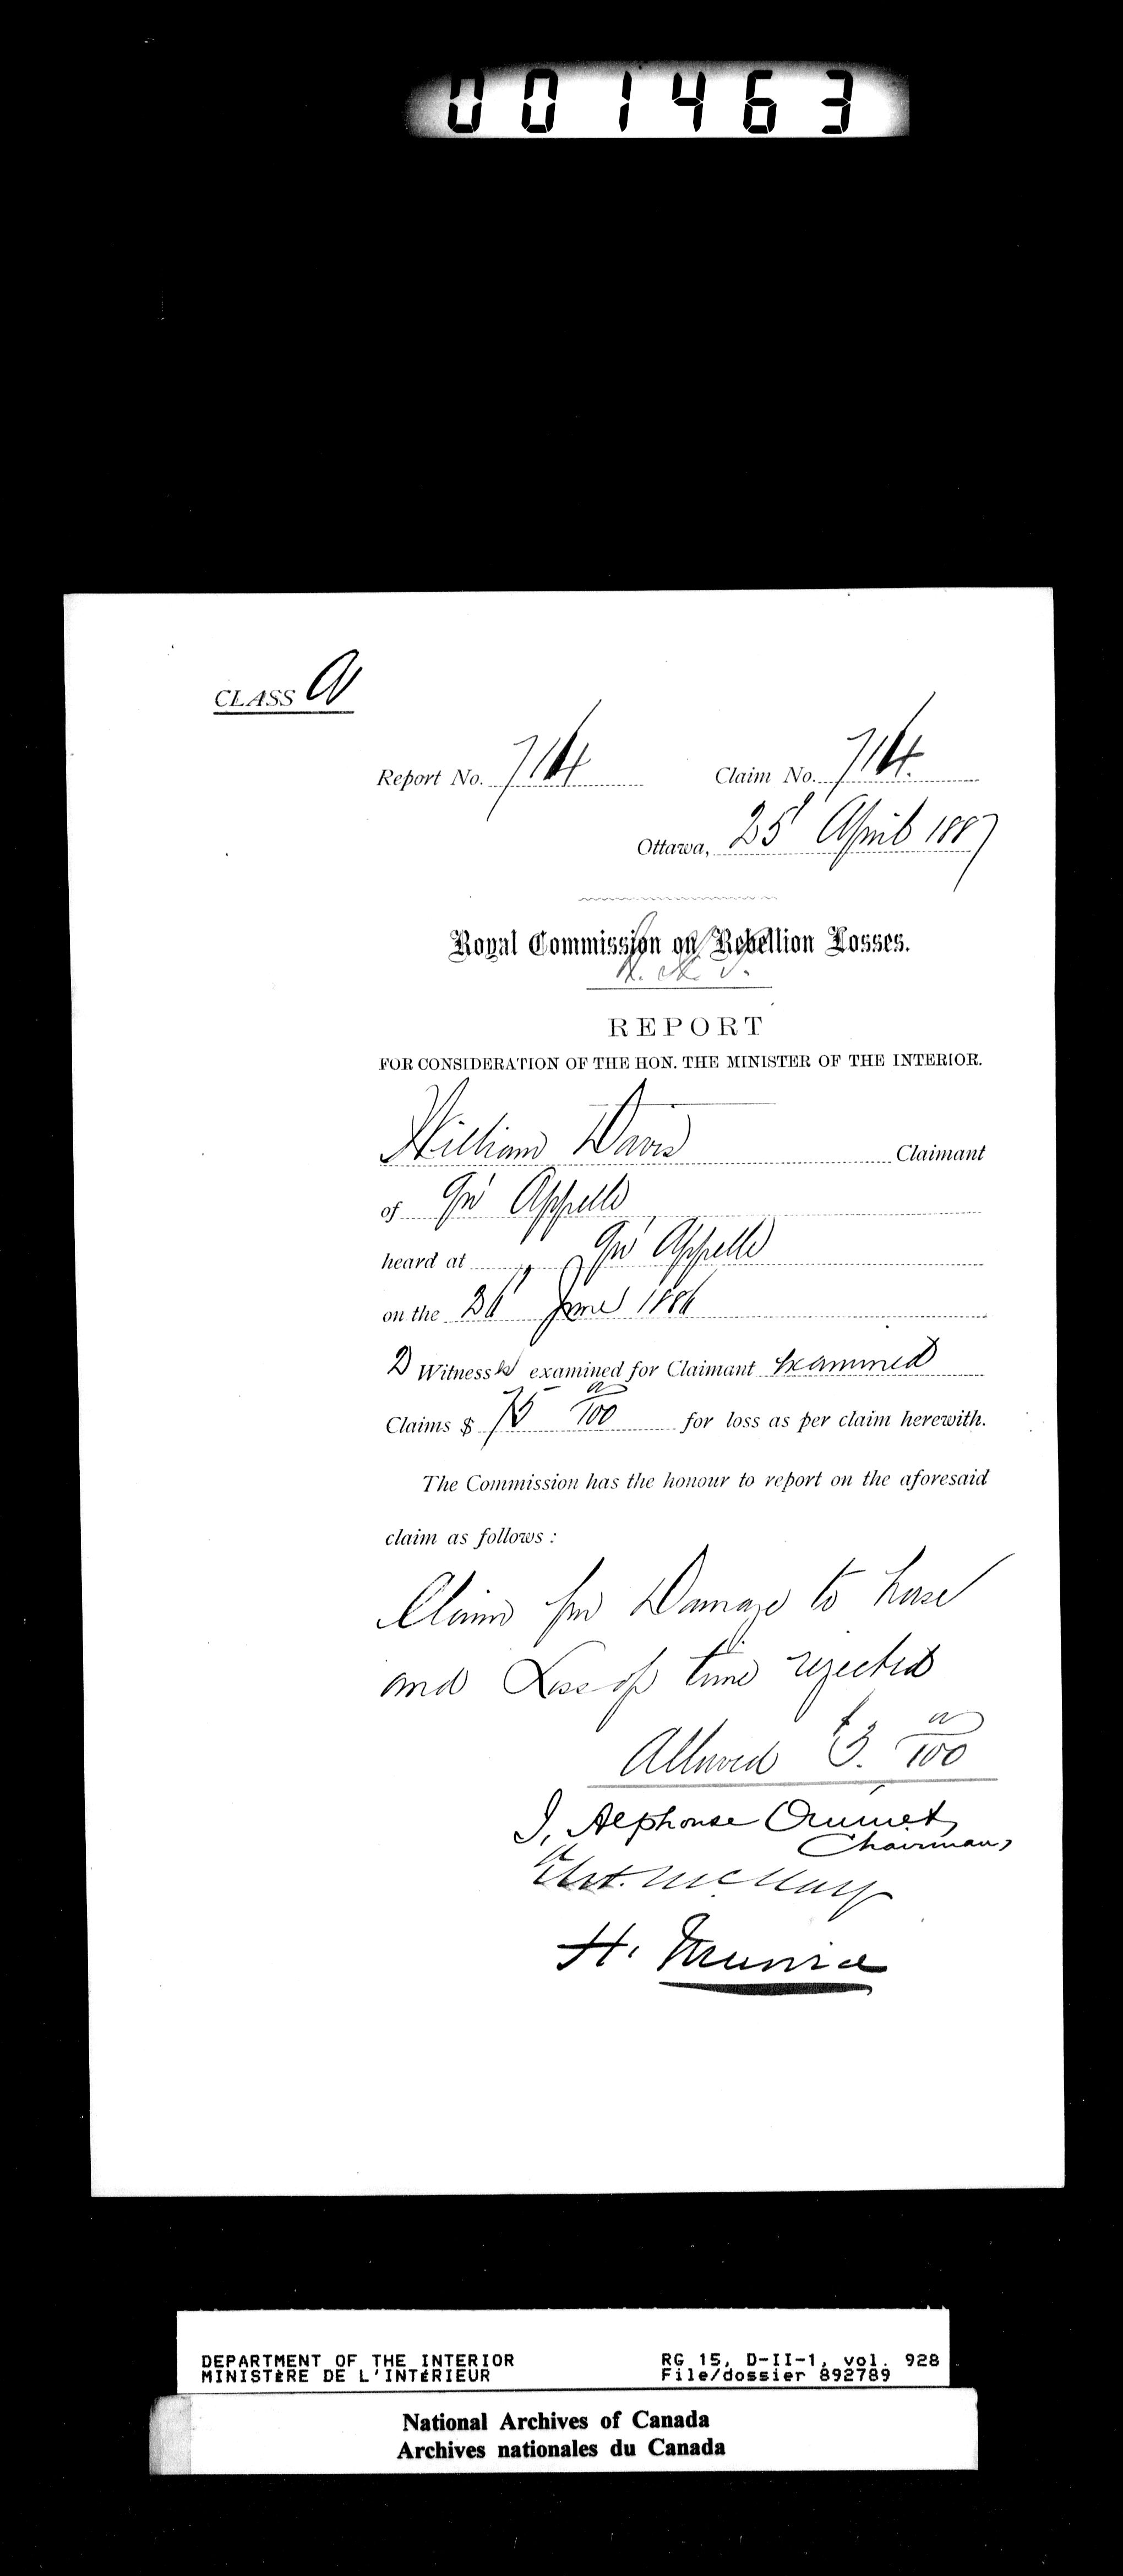 001463
CLASS A
Report No. 714 Claim No. 714.
Ottawa, 25' April 1887
Royal Commission on Rebellion Losses.
REPORT
FOR CONSIDERATION OF THE HON. THE MINISTER OF THE INTERIOR.
William Davis Claimant
of Qu' Appelle
heard at " Qu' Appelle
on the 26' June 1886
2 Witnesses examined for Claimant Examined
Claims $ 75 00/100 for loss as per claim herewith.
The Commission has the honour to report on the aforesaid
claim as follows :
Claim for Damage to horse
and Loss of time rejected
Allowed $3. 00/100
J, Alphonse Ouimet,
Chairman,
H. Muma
DEPARTMENT OF THE INTERIOR RG 15, D-II-1, vol. 928
MINISTÈRE DE L'INTÉRIEUR File/dossier 892789
National Archives of Canada
Archives nationales du Canada